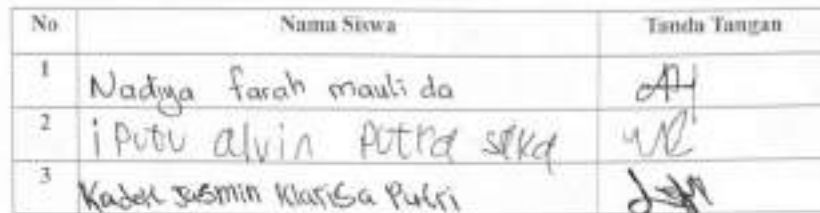 No Nama Siswa Tanda Tangan
1 Nadiya farah mauli da
2 i Putu alvin Putra seka
3 Kadek Jasmin Klarisa Putri